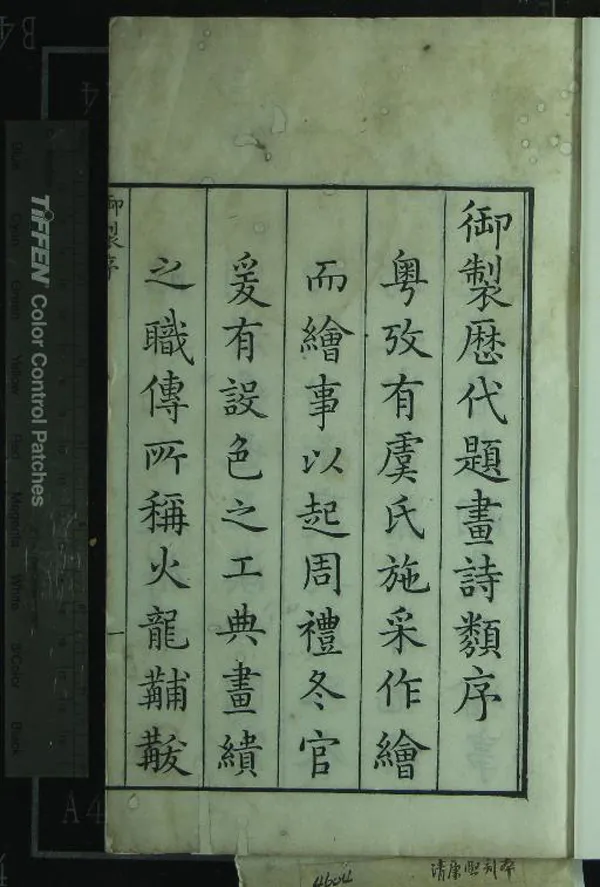 御製歷代題畫詩類序
粵攷有虞氏施采作繪
而繪事以起周禮冬官
爰有設色之工典畫繢
之職傳所稱火龍黼黻
御製序
一
TIFFEN Color Control Patches
清康熙刻本
4604
B4
A4